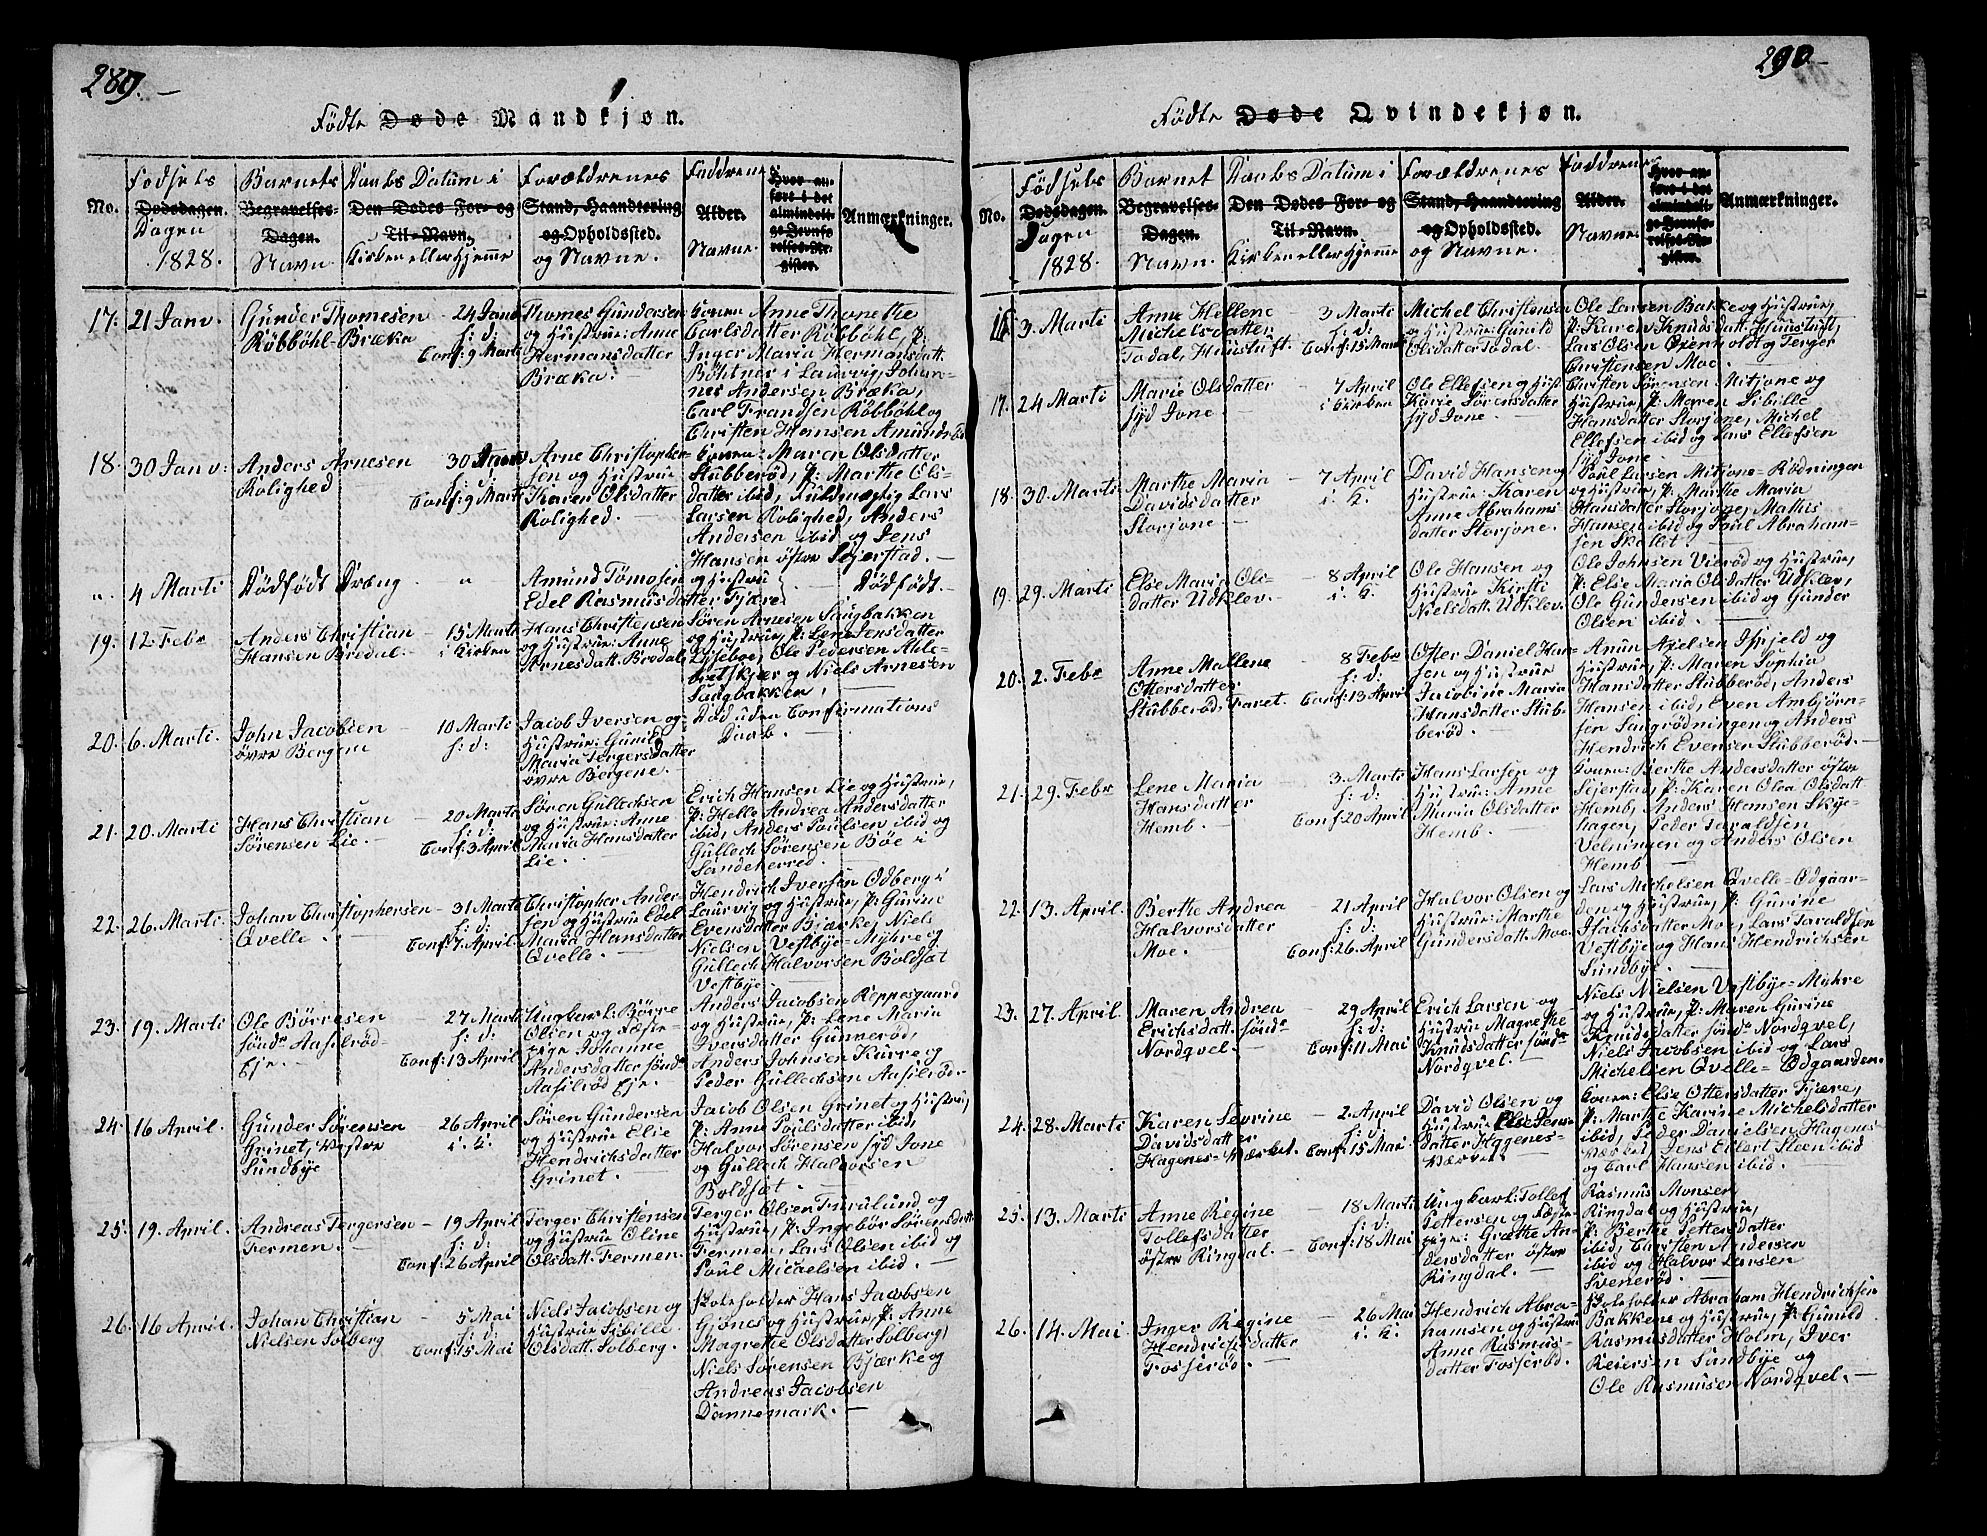 289.
Födte Døde Mandkjøn.
No.
Födsels
Dødsdagen.
Dagen
1828.
Barnets
Begravelses-
Dagen.
Navn
Daabs Datum i
Den Dødes For- og
Til-Navn.
Kirken eller Hjemme
Forældrenes
Stand, Haandtering
og Opholdssted.
og Navne.
Faddrenes
Alder.
Navne.
Hvor an-
ført i det
almindeli-
ge Jevnfø-
relses-Re-
gister.
Anmærkninger.
17.
21 Janv.
Gunder Thomesen
Röbböhl-Bræka
24 Janv
h: d:
Conf: 9 Marti
Thomes Gundersen
og Hustrue: Anne
Hermansdatter
Bræka.
Conen Anne Thonethe
Carlsdatter Röbböhl, P:
Inger Maria Hermansdatt.
Böhtnes i Laurvig, Johan-
nes Andersen Bræka,
Carl Frandsen Röbböhl og
Christen Hansen Amundrö
18.
30 Janv:
Anders Arnesen
Rolighed
30 Janv
h: d:
Conf: 9 Marti
Arne Christopher-
sen og Hustrue
Karen Olsdatter
Rolighed.
Conen: Maren Olsdatter
Stubberød, P: Marthe Ols-
datter ibid, Fuldmægtig Lars
Larsen Rolighed, Anders
Andersen ibid og Jens
Hansen östre Sejerstad.
"
4 Marti
Dödfödt Dræng
"
Amund Tömosen og Hustru
Edel Rasmusdatter Fjære
Dödfödt.
19.
12 Febr
Anders Christian
Hansen Bredal
15 Marti
i Kirken
Hans Christensen
og Hustrue: Anne
Arnesdatt. Brodal
Sören Arnesen Saugbakken
og Hustrue, P: Lene Jensdatter
Lyseboe, Ole Pedersen Ahle-
bretskjær og Niels Arnesen
Saugbakken
20.
6. Marti.
John Jacobsen
övre Bergene
10 Marti
h: d:
Jacob Iversen og
Hustrue: Gunild
Maria Tergersdatter
övre Bergene.
Död uden Confirmations
Daab.
21.
20. Marti
Hans Christian
Sörensen Lie.
20 Marti
h: d:
Conf: 3 April
Sören Gullechsen
og Hustrue: Anne
Maria Hansdatter
Lie.
Erich Hansen Lie og Hustrue,
P: Helle Andrea Andersdatter
ibid, Anders Poulsen ibid og
Gullech Sörensen Böe i
Sandeherred.
22.
26. Marti
Johan Christophersen
Qvelle.
31 Marti
h: d:
Conf: 7 April
Christopher Ander-
sen og Hustrue Edel
Maria Hansdatter
Qvelle.
Hendrich Iversen Odberg i
Laurvig og Hustrue, P: Gurine
Evensdatter Bjærke, Niels
Nielsen Vestbye-Myhre og
Gullech Halvorsen Boldsæt
Vestbye.
23.
19. Marti
Ole Börresen
sönd Aasilröd
Eje.
27 Marti
h: d:
Conf: 13 April
Ungkarl: Börre
Olsen og Fæste-
pige Johanne
Andersdatter sönd
Aasilröd Eje.
Anders Jacobsen Reppesgaard
og Hustrue, P: Lene Maria
Iversdatter Gunneröd,
Anders Johnsen Kurre og
Peder Gullechsen Aasilröd.
24.
16 April.
Gunder Sörensen
Grinet, Vestre
Sundbye
26 April
i. K.
Sören Gundersen
og Hustrue Elie
Hendrichsdatter
Grinet.
Jacob Olsen Grinet og Hustrue,
P: Anne Poulsdatter ibid,
Halvor Sörensen Syd Jone
og Gullech Halvorsen
Boldsæt.
25.
19. April.
Andreas Tergersen
Fermen.
19 April
h: d:
Conf: 26 April
Terger Christensen
og Hustrue Oline
Olsdatt. Fermen.
Terger Olsen Furulund og
Hustrue, P: Ingebör Sörensdatter
Fermen, Lars Olsen ibid og
Poul Micaelsen ibid.
26.
16 April.
Johan Christian
Nielsen Solberg
5 Mai
h: d:
Conf: 15 Mai
Niels Jacobsen og
Hustrue Sibille
Olsdatt. Solberg.
Skoleholder Hans Jacobsen
Gjönes og Hustrue, P: Anne
Magrethe Olsdatter Solberg,
Niels Sörensen Bjærke og
Andreas Jacobsen
Dannemark.
290
Födte Døde Qvindekjøn.
No.
Födsels
Dødsdagen.
Dagen
1828.
Barnet
Begravelses-
Dagen.
Navn.
Daabs Datum i
Den Dødes For- og
Til-Navn.
Kirken eller Hjemme
Forældrenes
Stand, Haandtering
og Opholdssted.
og Navne.
Faddrenes
Alder.
Navne.
Hvor an-
ført i det
almindeli-
ge Jevnfø-
relses-Re-
gister.
Anmærkninger.
16
3. Marti
Anne Hellene
Michelsdatter
Tadal, Haustuft.
3 Marti
h: d:
Conf: 15 Marti
Michel Christensen
og Hustrue: Gunild
Olsdatter Tadal.
Ole Larsen Bakke og Hustrue,
P: Karen Knudsdatt. Haustuft,
Lars Olsen Oxenholdt og Terger
Christensen Moe.
17.
24 Marti
Marie Olsdatter
Syd Jone.
7 April
i Kirken
Ole Ellefsen og Hust.
Karie Sörensdatter
Syd Jone
Christen Sörensen Mitjone og
Hustrue, P: Maren Sibille
Hansdatter Storjone, Michel
Ellefsen ibid og Lars Ellefsen
Syd Jone.
18.
30. Marti
Marthe Maria
Davidsdatter
Storjone
7 April
i. K.
David Hansen og
Hustrue: Karen
Anne Abrahams-
datter Storjone.
Poul Larsen Mitjone-Rödningen
og Hustrue, P: Marthe Maria
Hansdatter Storjone, Mathis
Hansen ibid og Poul Abraham-
sen Skallet.
19.
29. Marti
Else Maria Ols-
datter Udklev.
8 April
i. K.
Ole Hansen og
Hustrue Kirsti
Nielsdatt. Udklev.
Ole Johnsen Vieröd og Hustrue,
P: Else Maria Olsdatter Udklev,
Ole Gundersen ibid og Gunder
Olsen ibid.
20.
2. Febr
Anne Mallene
Ottersdatter
Stubberöd, Faret.
8 Febr
h: d:
Conf: 13 April
Otter Daniel Han-
sen og Hustrue
Jacobine Maria
Hansdatter Stub-
beröd.
Anun Axelsen Isfjeld og
Hustrue, P: Maren Sophia
Hansdatter Stubberöd, Anders
Hansen ibid, Even Ambjörn-
sen Saugrödningen og Anders
Hendrich Evensen Stubberöd.
21.
29. Febr
Lene Maria
Hansdatter
Hemb.
3. Marti
h: d:
Conf: 20 April
Hans Larsen og
Hustrue: Anne
Maria Olsdatter
Hemb.
Conen: Berthe Andersdatter östre
Sejerstad, P: Karen Olea Olsdatt
Hemb, Anders Hansen Skye-
hagen, Peder Taraldsen
Velningen og Anders Olsen
Hemb
22.
13. April.
Berthe Andrea
Halvorsdatter
Moe.
21 April
h: d:
Conf: 26 April
Halvor Olsen og
Hustrue: Marthe
Gundersdatt. Moe.
Lars Michelsen Qvelle-Odgaar-
den og Hustrue, P: Gurine
Isachsdatter Moe, Lars Taraldsen
Vestbye og Hans Hendrichsen
Sundbye.
23.
27. April.
Maren Andrea
Erichsdatt. sönd
Nordqvel.
29 April
h: d:
Conf: 11 Mai
Erich Larsen og
Hustrue Magrethe
Knudsdatter sönd
Nordqvel.
Niels Nielsen Vestbye-Myhre
og Hustrue, P: Maren Gurine
Knudsdatter sönd Nordqvel,
Niels Jacobsen ibid og Lars
Michelsen Qvelle-Odgaarden.
24.
28. Marti
Karen Sevrine
Davidsdatter
Hagenes-Værket.
2. April
h: d:
Conf: 15 Mai
David Olsen og
Hustrue Else Jens-
datter Hagenes-
Værket.
Conen: Else Ottersdatter Fjære,
P: Marthe Karine Michelsdatter
ibid, Peder Danielsen Hagenes
Værket, Jens Ellert Steen ibid
og Carl Hansen ibid.
25.
13. Marti
Anne Regine
Tollefsdatter
östre Ringdal.
18 Marti
h: d:
Conf: 18 Mai
Ungkarl: Tollef
Pettersen og Fæste-
pige: Græthe An-
dersdatter östre
Ringdal.
Rasmus Monsen
Ringdal og Hustrue,
P: Berthe Pettersdatter
ibid, Christen Andersen
ibid og Halvor Larsen
Sveneröd.
26.
14. Mai
Inger Regine
Hendrichsdatter
Fosseröd.
26 Mai
i. K.
Hendrich Abra-
hamsen og Hustrue
Anne Rasmus-
datter Fosseröd.
Skoleholder Abraham Hendrichsen
Bakkene og Hustrue, P: Gunild
Rasmusdatter Holm, Iver
Reiersen Sundbye og
Ole Rasmusen Nordqvel.